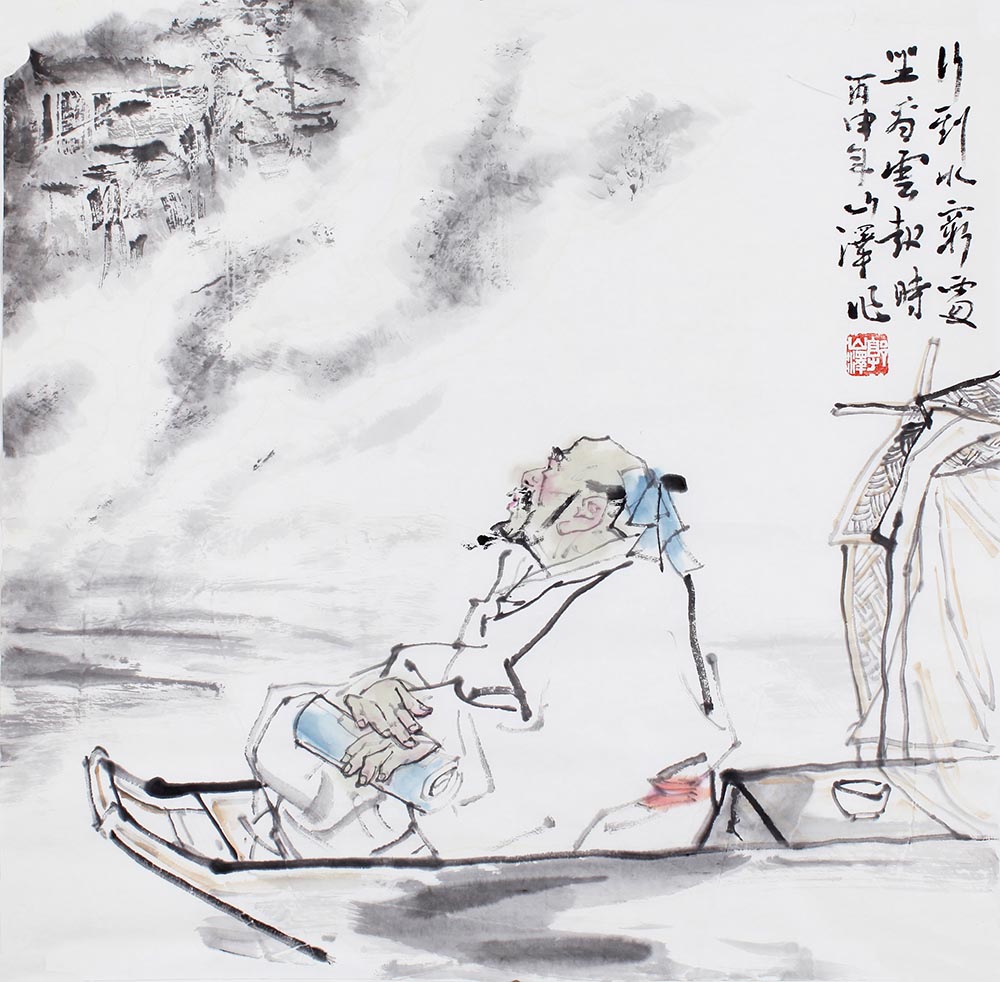 行到水窮處
坐看雲起時
丙申年山澤作
郭山澤